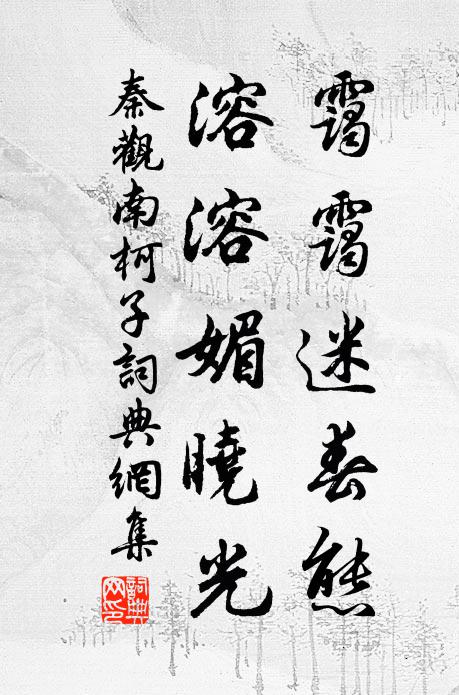 靄靄迷春態
溶溶媚曉光
秦觀南柯子詞典網集
詞典网印